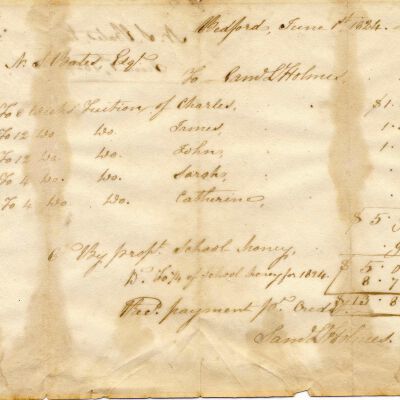 Bedford, June 1st 1824.
N. S. Bates, Esqr
To Saml L Holmes,
To 6 weeks Tuition of Charles, $1.
To 12 Do. Do. James, 1.
To 12 Do. Do. John, 1.
To 4 Do. Do. Sarah,
To 4 Do. Do. Catherine,
$5.
By propt. School money,
$5.0
of School money for 1824. 8.7
$13.8
Recd. payment pr. Credit
Saml L Holmes.